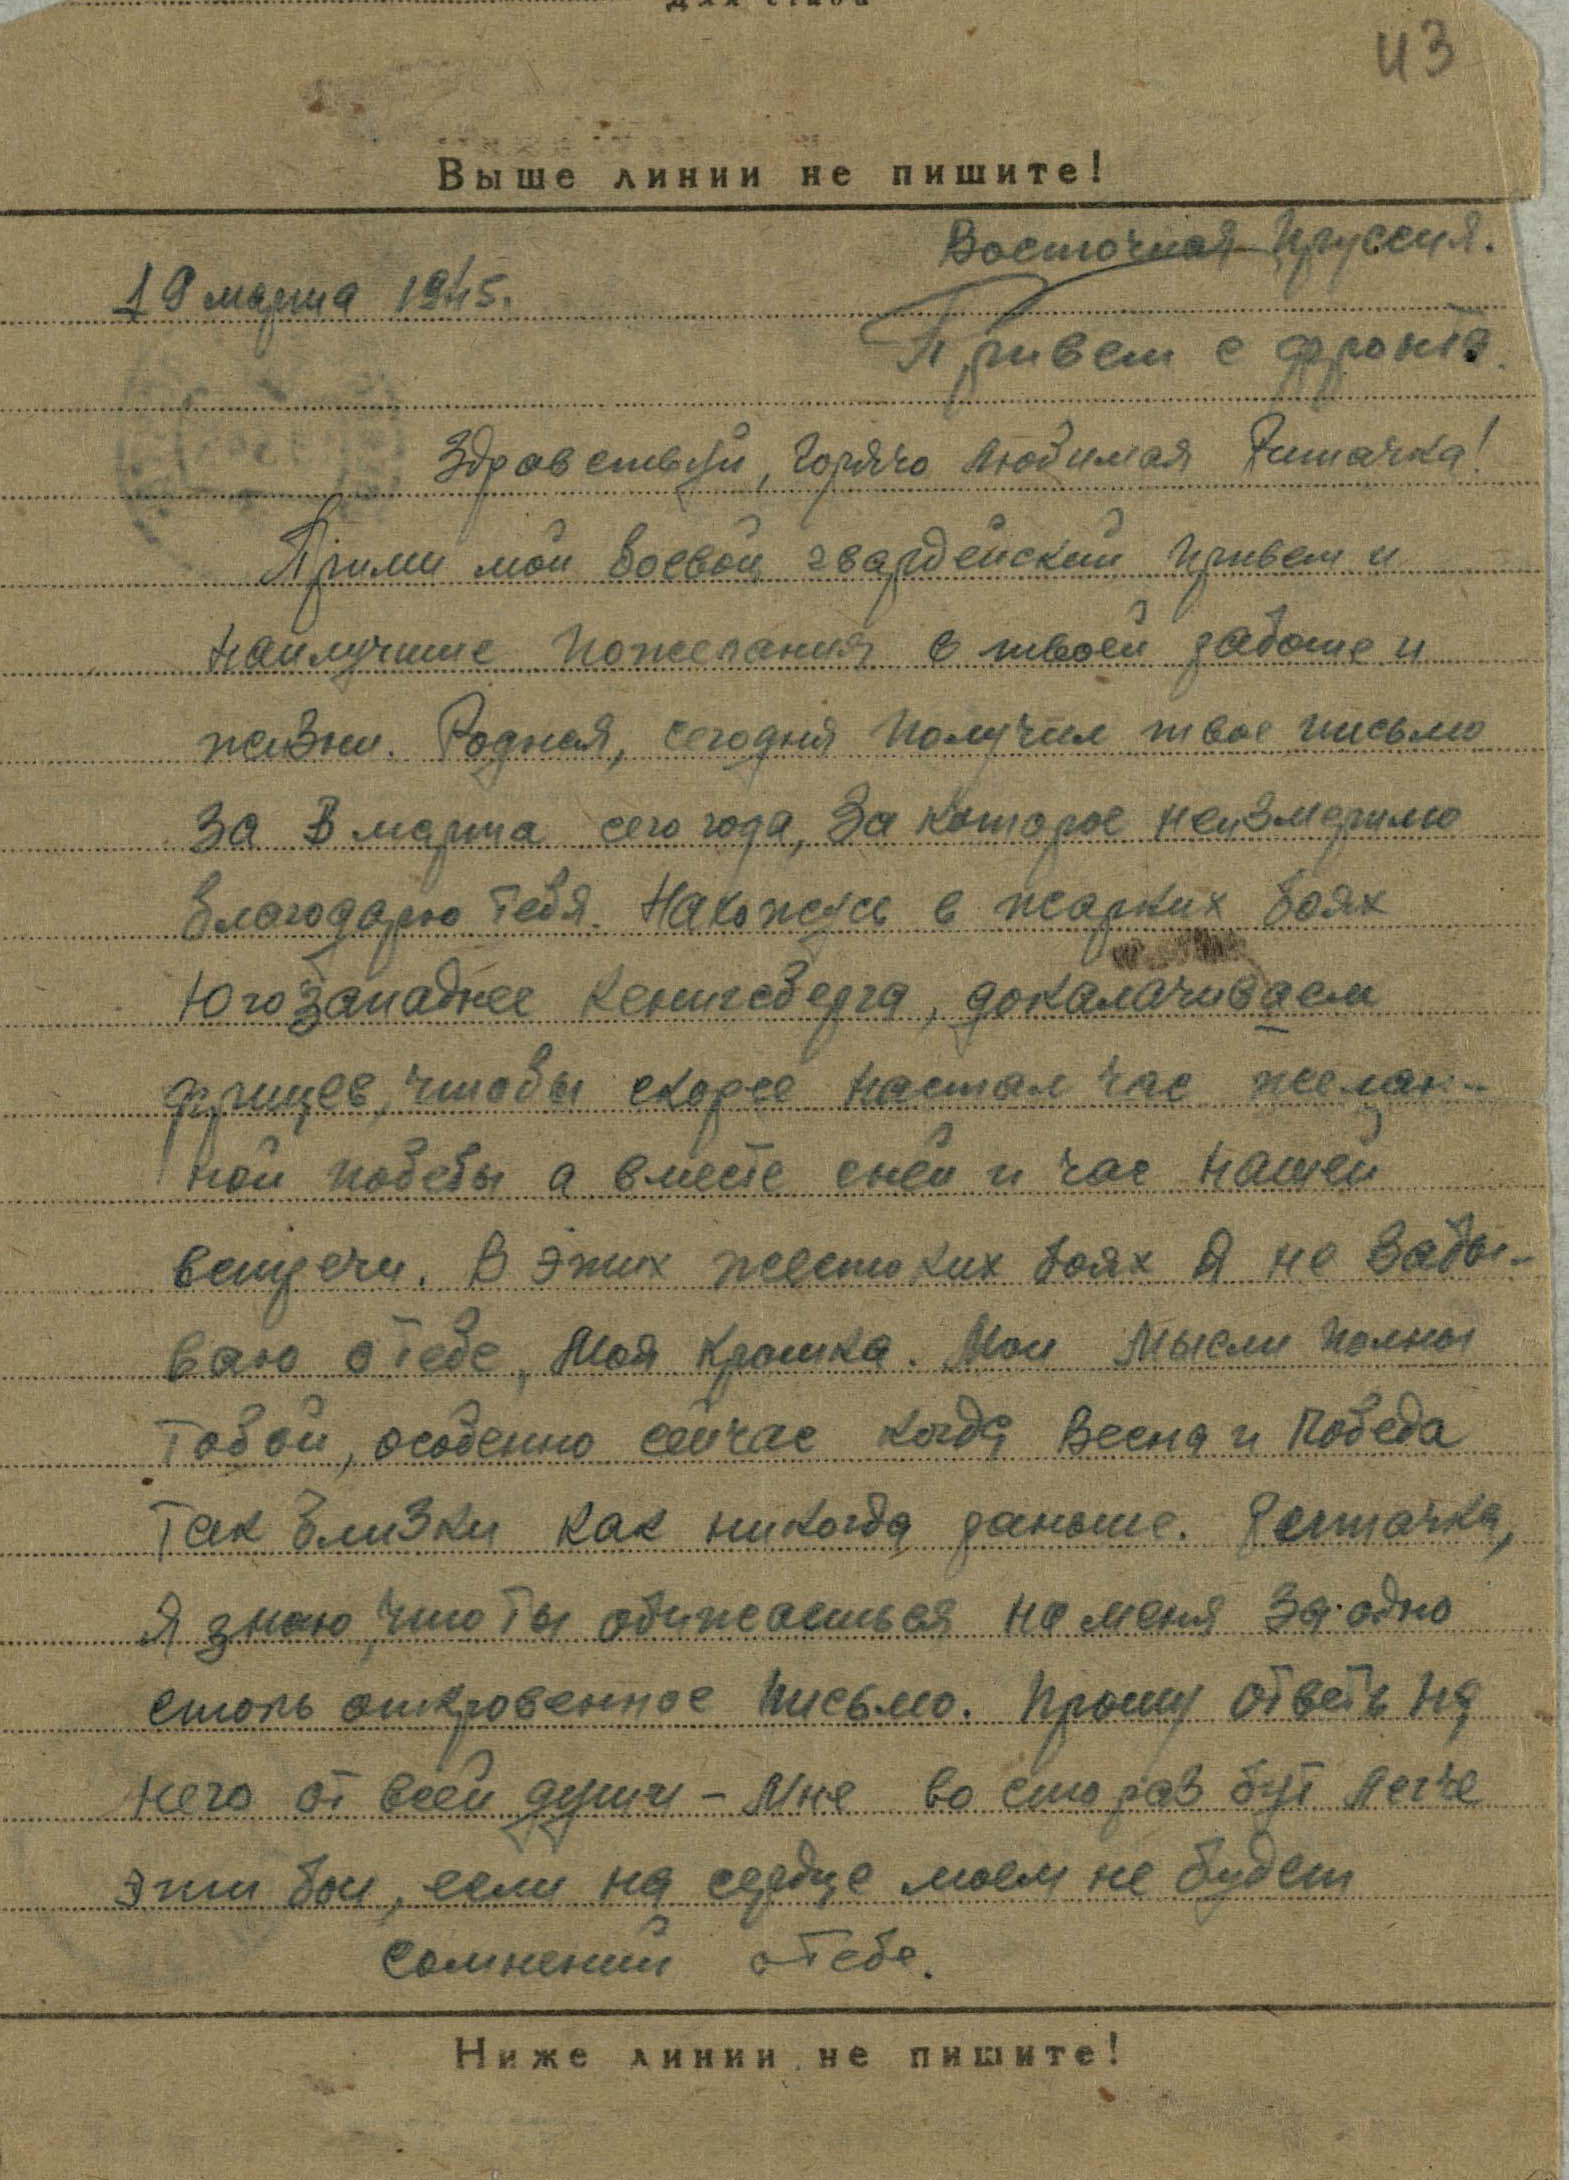 43
Выше линии не пишите!
Восточная Пруссия.
19 марта 1945.
Привет с фронта.
Здравствуй, горячо любимая Риточка!
Прими мой боевой гвардейский привет и
наилучшие пожелания в твоей работе и
жизни. Родная, сегодня получил твое письмо
за 3 марта сего года, за которое неизмеримо
благодарю тебя. Нахожусь в жарких боях
югозападнее Кенигсберга, доколачиваем
фрицев, чтобы скорее настал час желан-
ной победы а вместе с ней и час нашей
встречи. В этих жестоких боях я не забы-
ваю о тебе, моя крошка. Мои мысли полны
тобой, особенно сейчас когда Весна и Победа
так близки как никогда раньше. Риточка,
я знаю, что ты обижаешься на меня за одно
столь откровенное письмо. Прошу ответь на
него от всей души – мне во сто раз бут легче
эти бои, если на сердце моем не будет
сомнений о тебе.
Ниже линии не пишите!